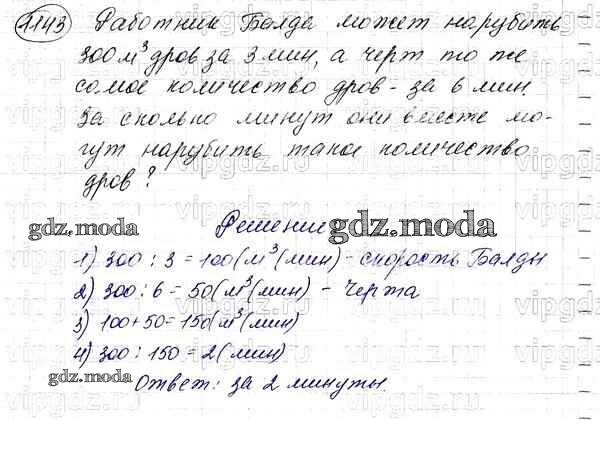 1143 Работник Балда может нарубить
300 м³ дров за 3 мин, а черт то же
самое количество дров - за 6 мин.
За сколько минут они вместе мо-
гут нарубить такое количество
дров?
gdz.moda
Решение
gdz.moda
1) 300 : 3 = 100 (м³(мин) - скорость Балды
2) 300 : 6 = 50 (м³(мин) - Черта
3) 100+50=150 (м³(мин)
4) 300 : 150 = 2 (мин)
gdz.moda
Ответ: за 2 минуты.